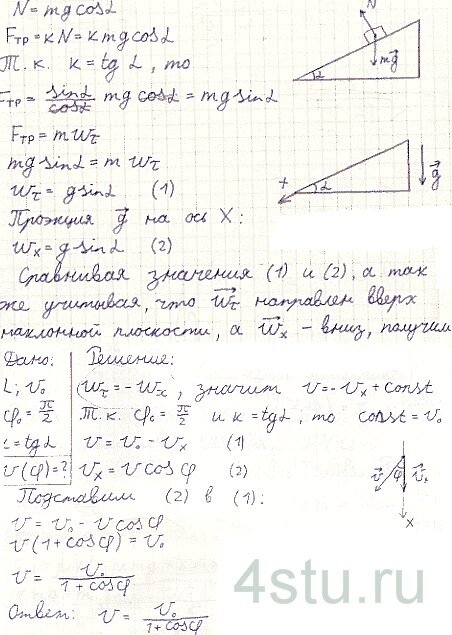 N = mg cosα
Fтр = кN = кmg cosα
Т. к. к = tg α, то
Fтр = sinα/cosα mg cosα = mg sinα
Fтр = m wτ
mg sinα = m wτ
wτ = g sinα (1)
Проэкция g⃗ на ось X:
wx = g sinα (2)
Сравнивая значения (1) и (2), а так
же учитывая, что w⃗τ направлен вверх
наклонной плоскости, а w⃗x – вниз, получим
Дано: Решение:
α; v₀ wτ = -wx, значит v = -vx + const
φ₀ = π/2 Т. к. φ₀ = π/2 и к = tgα, то const = v₀
к = tgα v = v₀ - vx (1)
v(φ) = ? vx = v cosφ (2)
Подставим (2) в (1):
v = v₀ - v cosφ
v(1 + cosφ) = v₀
v = v₀/(1 + cosφ)
Ответ: v = v₀/(1 + cosφ)
N⃗
mg⃗
α
+
α
g⃗
v⃗
φ
v⃗x
X
4stu.ru